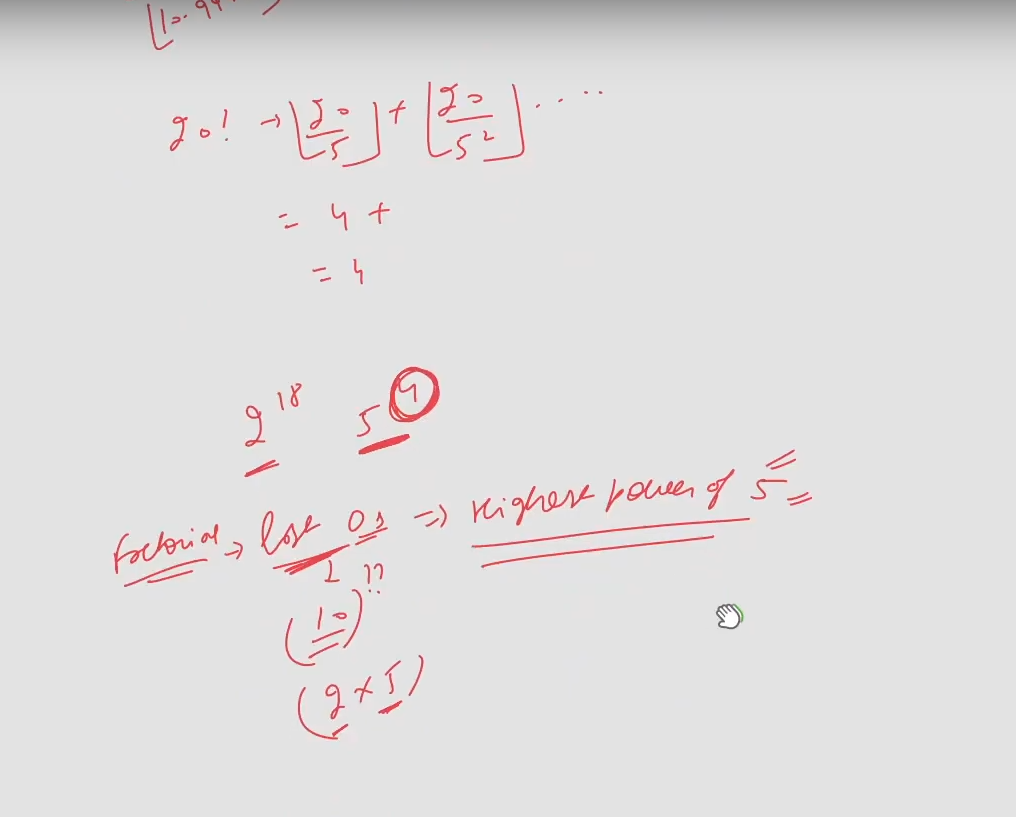 20! → ⌊20/5⌋ + ⌊20/5²⌋ .....
= 4 +
= 4
2¹⁸ 5⁴
Factorial → last 0s ⇒ Highest power of 5
↓ ??
(10)
(2 × 5)